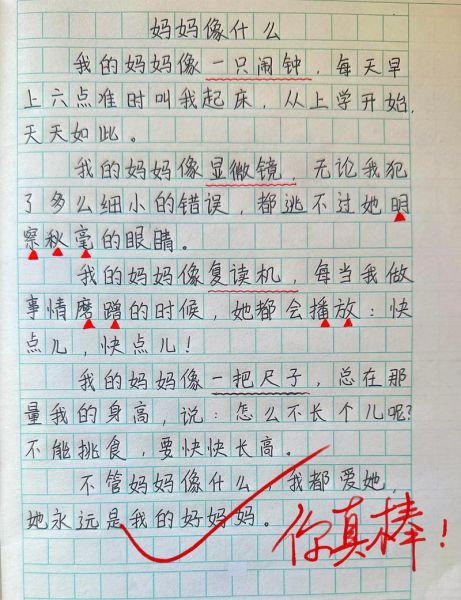 妈妈像什么
我的妈妈像一只闹钟，每天早
上六点准时叫我起床，从上学开始，
天天如此。
我的妈妈像显微镜，无论我犯
了多么细小的错误，都逃不过她明
察秋毫的眼睛。
我的妈妈像复读机，每当我做
事情磨蹭的时候，她都会播放：快
点儿，快点儿！
我的妈妈像一把尺子，总在那
量我的身高，说：怎么不长个儿呢？
不能挑食，要快快长高。
不管妈妈像什么，我都爱她，
她永远是我的好妈妈。
你真棒！